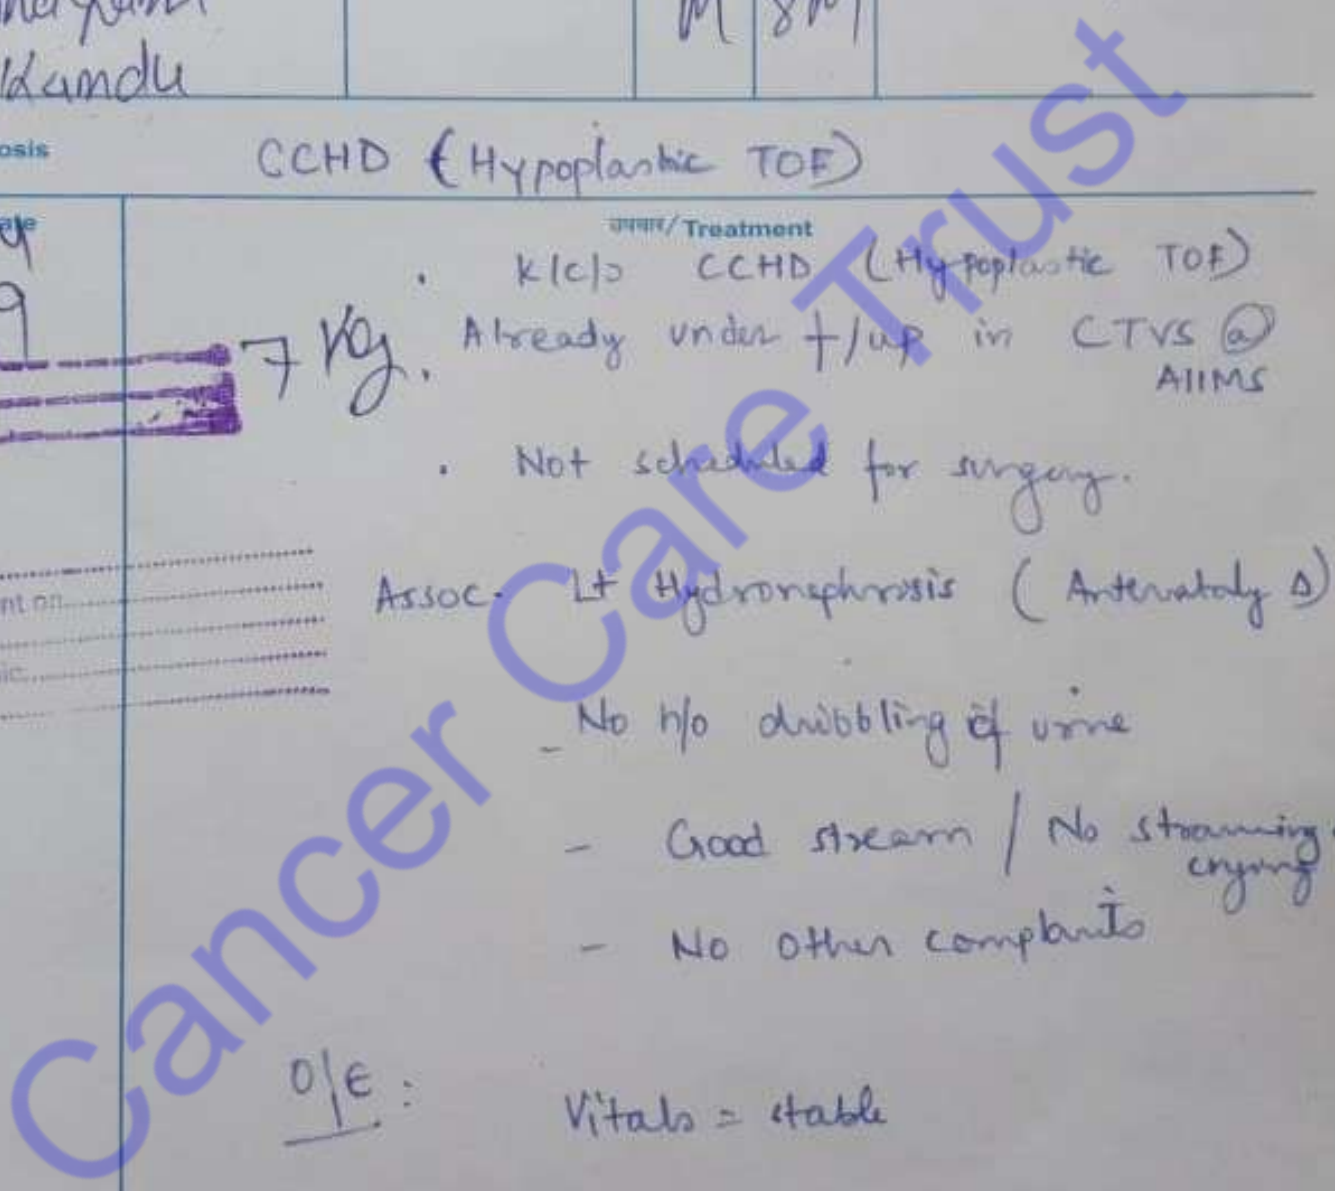 Kamdu
M 8M
osis CCHD (Hypoplastic TOF)
ate उपचार/Treatment
9
• K/c/o CCHD (Hypoplastic TOF)
7 Kg. Already under f/up in CTVS @
AIIMS
• Not scheduled for surgery.
nt on
Assoc. Lt Hydronephrosis ( Antenataly Δ)
ic
- No h/o dribbling of urine
- Good stream / No straining
crying
- No other complaints
O/E : Vitals = stable
Cancer Care Trust